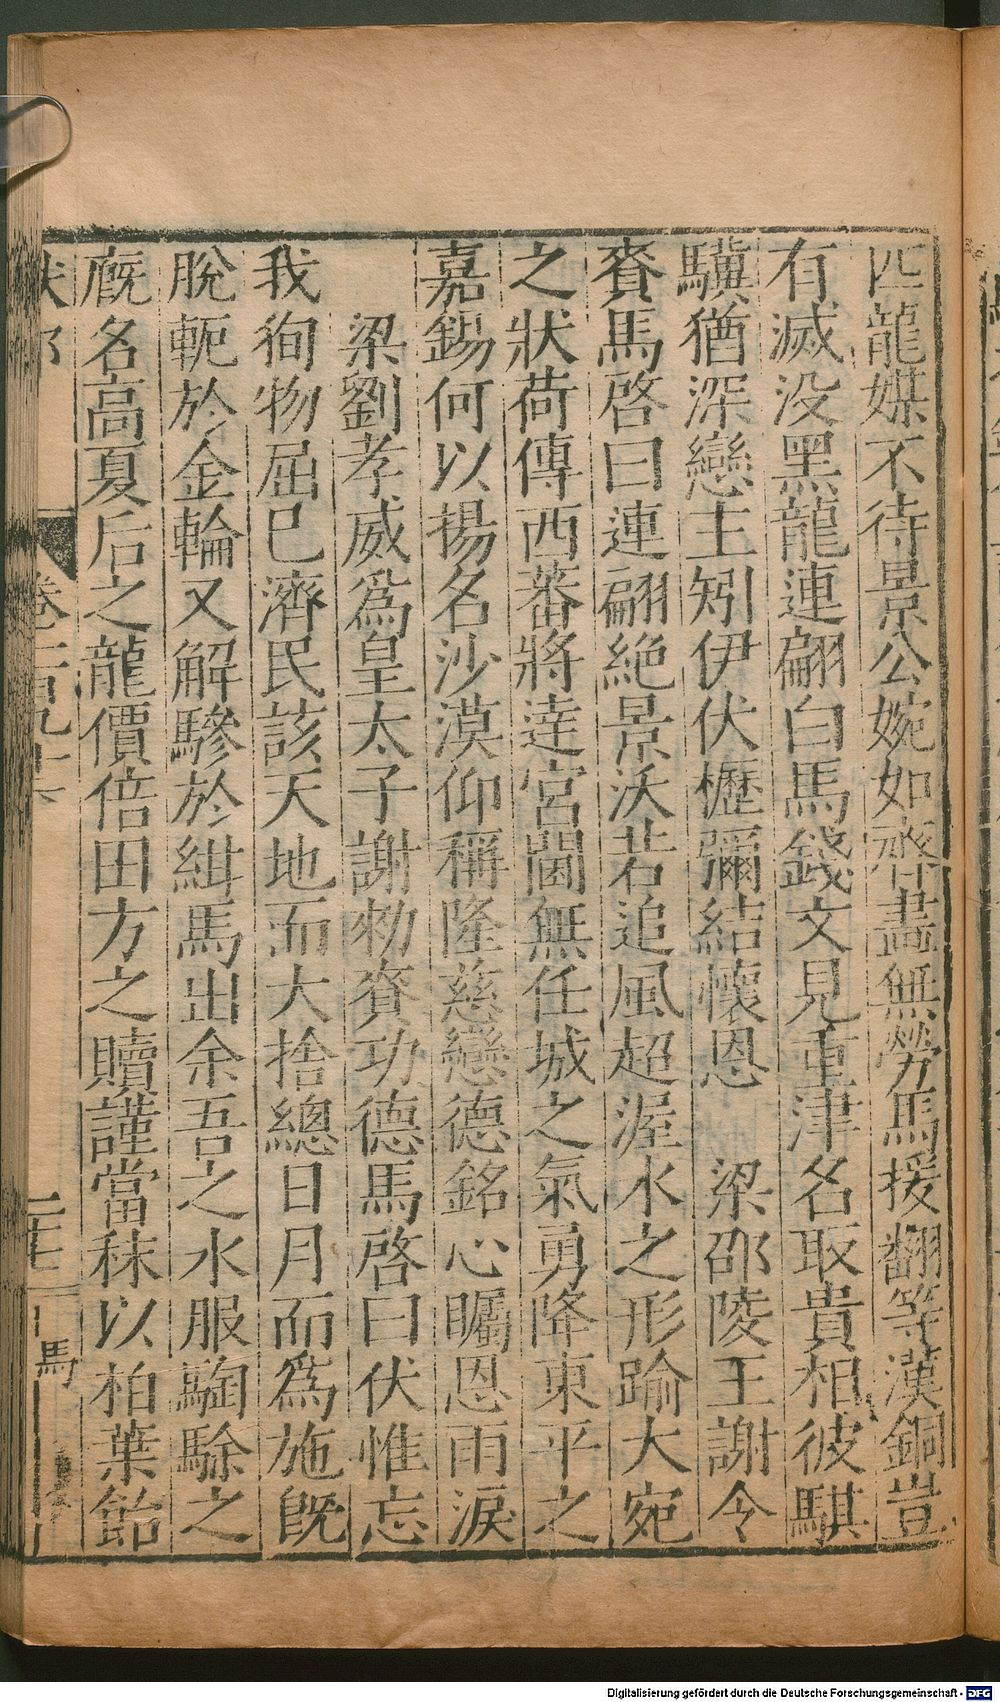 匹龍媒不待景公婉如齊畵無勞馬援翻等漢銅豈
有滅没黑龍連翩白馬錢文見重津名取貴相彼騏
驥猶深戀主矧伊伏櫪彌結懷恩 梁邵陵王謝令
賚馬啓曰連翩絶景沃若追風超渥水之形踰大宛
之狀荷傳西蕃將逹宮閫無任城之氣勇降東平之
嘉錫何以揚名沙漠仰稱隆慈戀德銘心矚恩雨淚
梁劉孝威爲皇太子謝勑賚功德馬啓曰伏惟忘
我徇物屈已濟民該天地而大捨總日月而爲施旣
脫軛於金輪又解驂於紺馬出余吾之水服騊駼之
廐名高夏后之龍價倍田方之贖謹當秣以柏葉飴
卷二百九十六
二七 馬
Digitalisierung gefördert durch die Deutsche Forschungsgemeinschaft - DFG